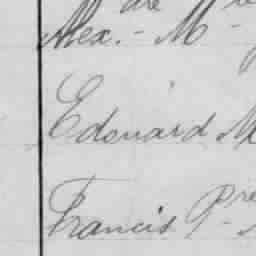 Alex.- M
Edouard M
Francis P